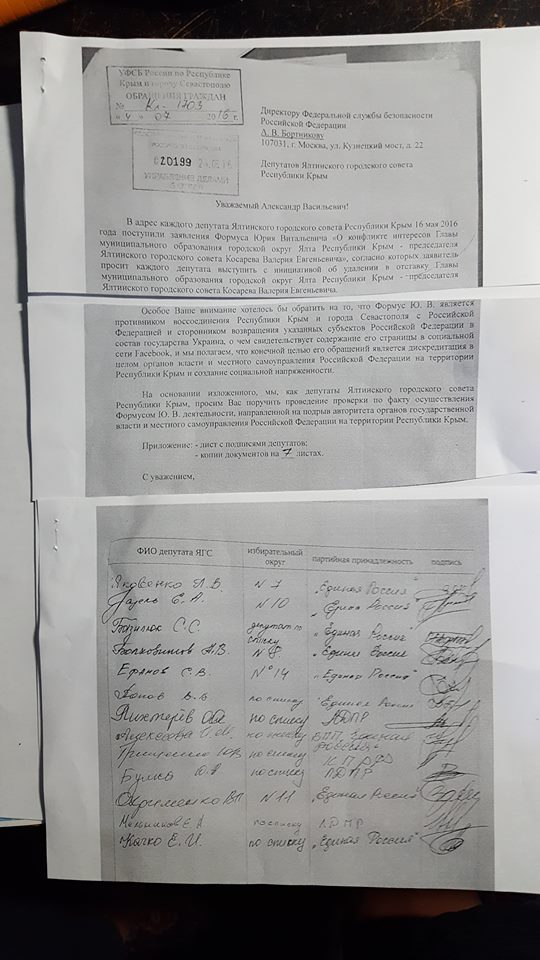 УФСБ России по Республике
Крым и городу Севастополю
ОБРАЩЕНИЯ ГРАЖДАН
№ Кл-1203
"4" 07 2016 г.
020199
УПРАВЛЕНИЕ ДЕЛАМИ
Директору Федеральной службы безопасности
Российской Федерации
А. В. Бортникову
107031, г. Москва, ул. Кузнецкий мост, д. 22
Депутатов Ялтинского городского совета
Республики Крым
Уважаемый Александр Васильевич!
В адрес каждого депутата Ялтинского городского совета Республики Крым 16 мая 2016
года поступили заявления Формуса Юрия Витальевича «О конфликте интересов Главы
муниципального образования городской округ Ялта Республики Крым - председателя
Ялтинского городского совета Косарева Валерия Евгеньевича», согласно которых заявитель
просит каждого депутата выступить с инициативой об удалении в отставку Главы
муниципального образования городской округ Ялта Республики Крым - председателя
Ялтинского городского совета Косарева Валерия Евгеньевича.
Особое Ваше внимание хотелось бы обратить на то, что Формус Ю. В. является
противником воссоединения Республики Крым и города Севастополя с Российской
Федерацией и сторонником возвращения указанных субъектов Российской Федерации в
состав государства Украина, о чем свидетельствует содержание его страницы в социальной
сети Facebook, и мы полагаем, что конечной целью его обращений является дискредитация в
целом органов власти и местного самоуправления Российской Федерации на территории
Республики Крым и создание социальной напряженности.
На основании изложенного, мы, как депутаты Ялтинского городского совета
Республики Крым, просим Вас поручить проведение проверки по факту осуществления
Формусом Ю. В. деятельности, направленной на подрыв авторитета органов государственной
власти и местного самоуправления Российской Федерации на территории Республики Крым.
Приложение: - лист с подписями депутатов:
- копии документов на 7 листах.
С уважением,
ФИО депутата ЯГС избирательный округ партийная принадлежность подпись
Яковенко П.В. N 7 "Единая Россия"
Е. А. N 10 "Един Россия"
С. С. депутат по списку "Единая Россия"
А.В. N 8 "Единая Россия"
Ефанов С.В. N° 14 "Единая Россия"
Попов по списку "Единая Россия"
по списку ЛДПР
Алексеева по списку ВПП "Единая Россия"
по списку КПРФ
по списку ЛДПР
Охрименко ВП N 11 "Единая Россия"
Е.А по списку ЛДПР
Качко Е.И. по списку "Единая Россия"